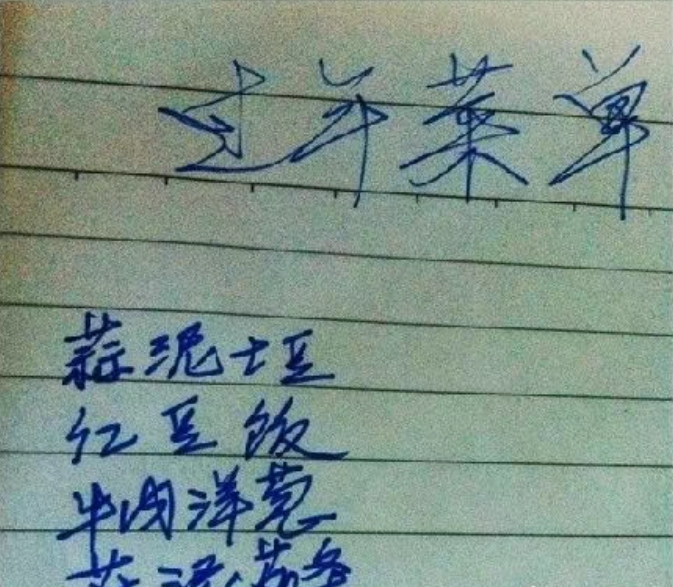 过年菜单
蒜泥土豆
红豆饭
牛肉洋葱